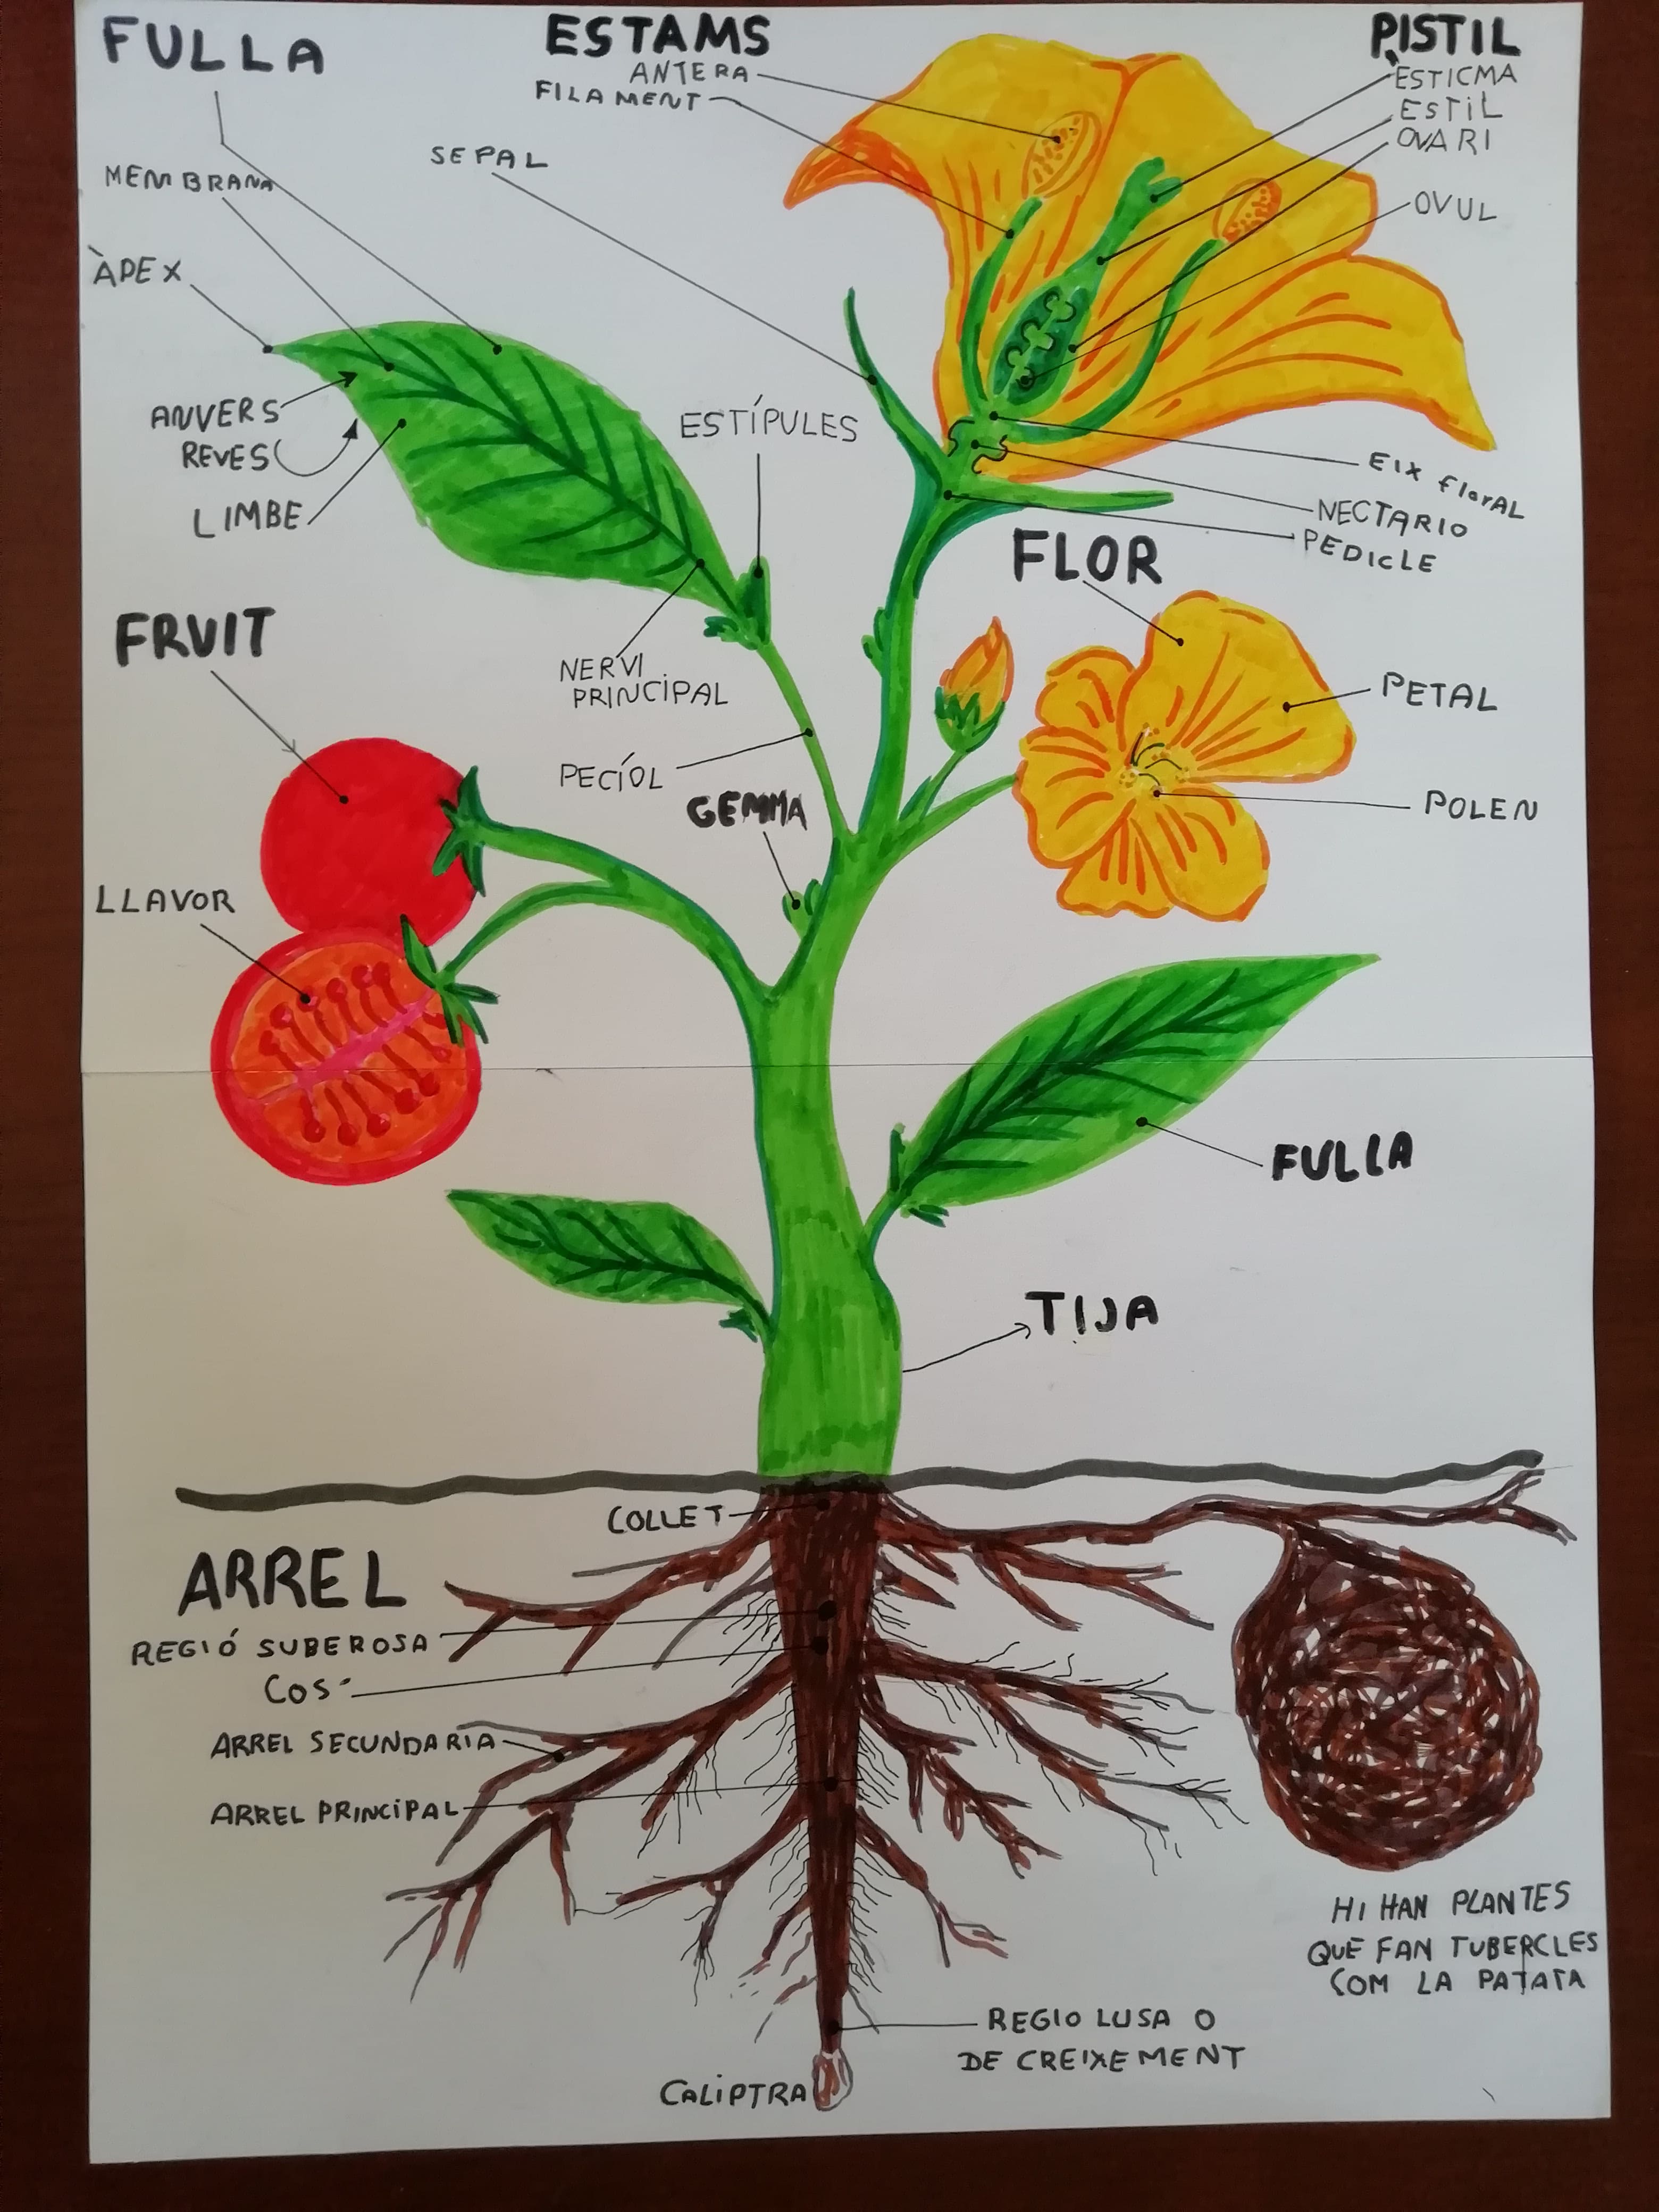 FULLA
ESTAMS
ANTERA
FILAMENT
PISTIL
ESTICMA
ESTIL
OVARI
OVUL
SEPAL
MEMBRANA
ÀPEX
ANVERS
REVES
LIMBE
ESTÍPULES
EIX florAL
NECTARIO
PEDICLE
FLOR
FRUIT
NERVI
PRINCIPAL
PETAL
PECÍOL
GEMMA
POLEN
LLAVOR
FULLA
TIJA
COLLET
ARREL
REGIÓ SUBEROSA
COS
ARREL SECUNDARIA
ARREL PRINCIPAL
HI HAN PLANTES
QUE FAN TUBERCLES
COM LA PATATA
REGIO LUSA O
DE CREIXEMENT
CALIPTRA